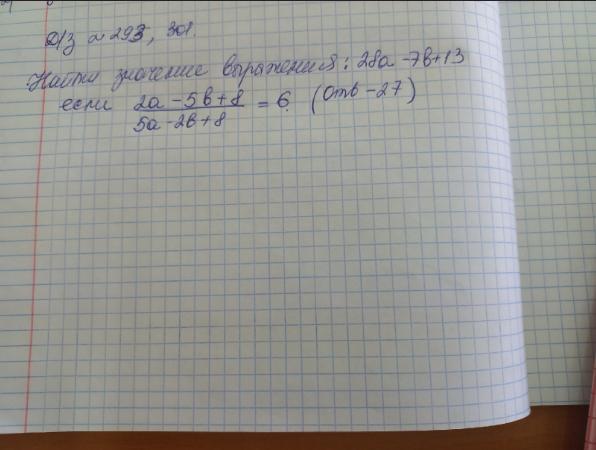 Д/з ~ 293, 301.
Найти значение выражения: 28a - 7b + 13
если 2a - 5b + 8 / 5a - 2b + 8 = 6. (Отв - 27)